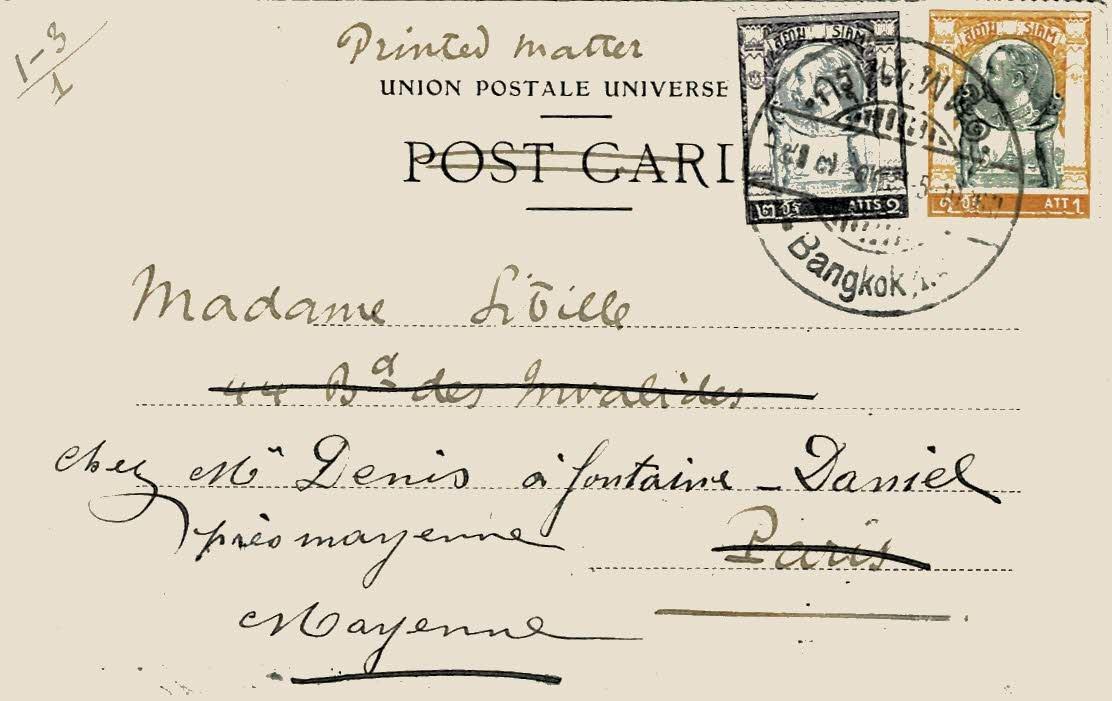 1-3
1
Printed matter
UNION POSTALE UNIVERSE
POST CARI
สยาม SIAM
๒ อัฐ ATTS 2
สยาม SIAM
๑ อัฐ ATT 1
Bangkok
Madame Sibille
44 Bd des Invalides
chez Mr Denis à fontaine - Daniel
près mayenne Paris
Mayenne